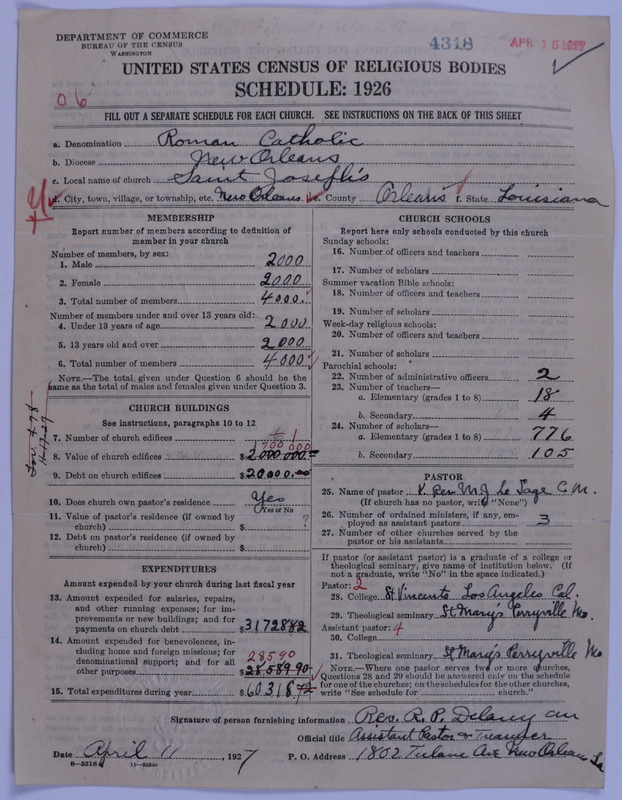 DEPARTMENT OF COMMERCE
BUREAU OF THE CENSUS
WASHINGTON
4318
APR 15 1927
UNITED STATES CENSUS OF RELIGIOUS BODIES
SCHEDULE: 1926
06
FILL OUT A SEPARATE SCHEDULE FOR EACH CHURCH. SEE INSTRUCTIONS ON THE BACK OF THIS SHEET
a. Denomination Roman Catholic
b. Diocese New Orleans
c. Local name of church Saint Joseph's
d. City, town, village, or township, etc. New Orleans e. County Orleans f. State Louisiana
MEMBERSHIP
Report number of members according to definition of member in your church
Number of members, by sex:
1. Male 2000
2. Female 2000
3. Total number of members 4000.
Number of members under and over 13 years old:
4. Under 13 years of age 2000
5. 13 years old and over 2000
6. Total number of members 4000
NOTE.—The total given under Question 6 should be same as the total of males and females given under Question 3.
CHURCH BUILDINGS
See instructions, paragraphs 10 to 12
7. Number of church edifices 1
8. Value of church edifices $
9. Debt on church edifices $20000.00
10. Does church own pastor's residence Yes
Yes or No
11. Value of pastor's residence (if owned by church) $ ?
12. Debt on pastor's residence (if owned by church) $
EXPENDITURES
Amount expended by your church during last fiscal year
13. Amount expended for salaries, repairs, and other running expenses; for improvements or new buildings; and for payments on church debt $31728 82
14. Amount expended for benevolences, including home and foreign missions; for denominational support; and for all other purposes
28590
$28589.90
15. Total expenditures during year $60318.72
CHURCH SCHOOLS
Report here only schools conducted by this church
Sunday schools:
16. Number of officers and teachers
17. Number of scholars
Summer vacation Bible schools:
18. Number of officers and teachers
19. Number of scholars
Week-day religious schools:
20. Number of officers and teachers
21. Number of scholars
Parochial schools:
22. Number of administrative officers 2
23. Number of teachers—
a. Elementary (grades 1 to 8) 18
b. Secondary 4
24. Number of scholars—
a. Elementary (grades 1 to 8) 776
b. Secondary 105
PASTOR
25. Name of pastor V. Rev M. J. Le Sage C.M.
(If church has no pastor, write "None")
26. Number of ordained ministers, if any, employed as assistant pastors 3
27. Number of other churches served by the pastor or his assistants
If pastor (or assistant pastor) is a graduate of a college or theological seminary, give name of institution below. (If not a graduate, write "No" in the space indicated.)
Pastor: 2
28. College St Vincents Los Angeles Cal.
29. Theological seminary St Mary's Perryville Mo.
Assistant pastor: 4
30. College
31. Theological seminary St Mary's Perryville Mo
NOTE.—Where one pastor serves two or more churches, Questions 28 and 29 should be answered only on the schedule for one of the churches; on the schedules for the other churches, write "See schedule for church."
Signature of person furnishing information Rev. R. P. Delany cm
Official title Assistant Pastor & Treasurer
Date April 11, 1927 P. O. Address 1802 Tulane Ave New Orleans La
8-5518